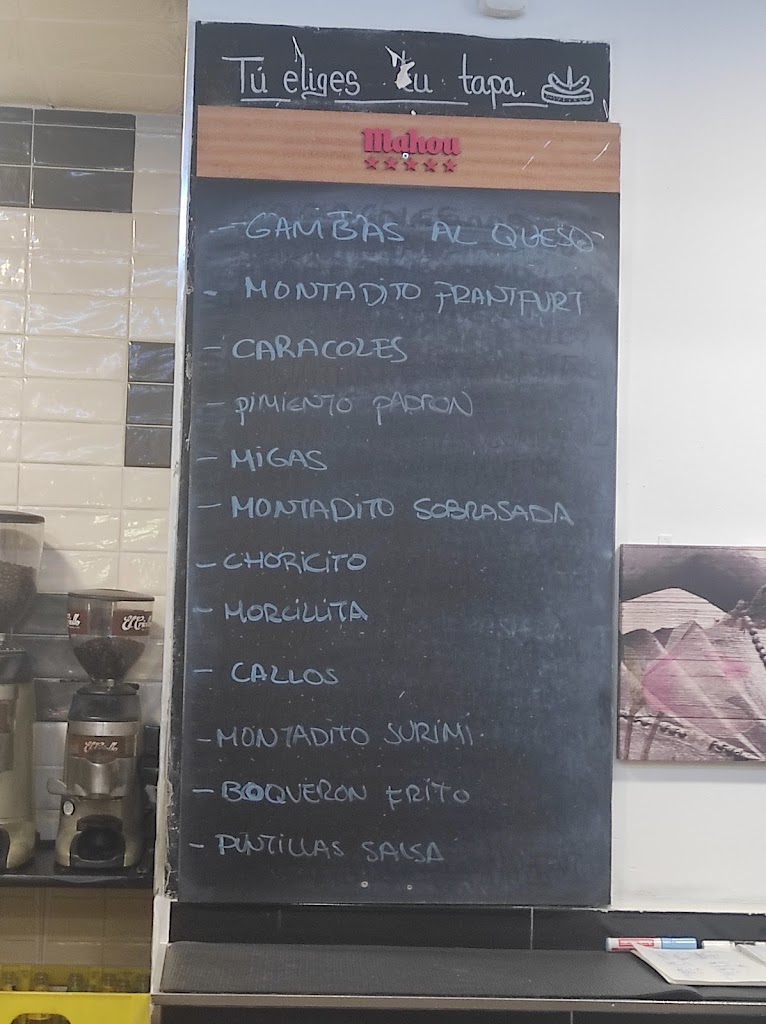 Tú eliges tu tapa.
Mahou
- GAMBAS AL QUESO -
- MONTADITO FRANTFURT
- CARACOLES
- PIMIENTO PADRON
- MIGAS
- MONTADITO SOBRASADA
- CHORICITO
- MORCILLITA
- CALLOS
- MONTADITO SURIMI
- BOQUERON FRITO
- PUNTILLAS SALSA